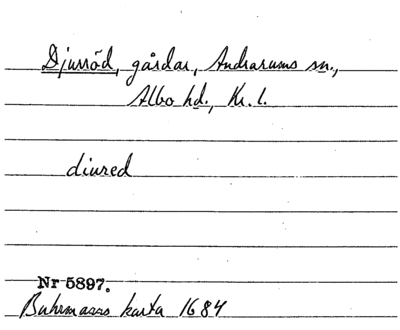 Djurröd, gårdar, Andrarums sn.,
Albo hd., Kr. l.
diured
Nr 5897.
Buhrmanns karta 1684